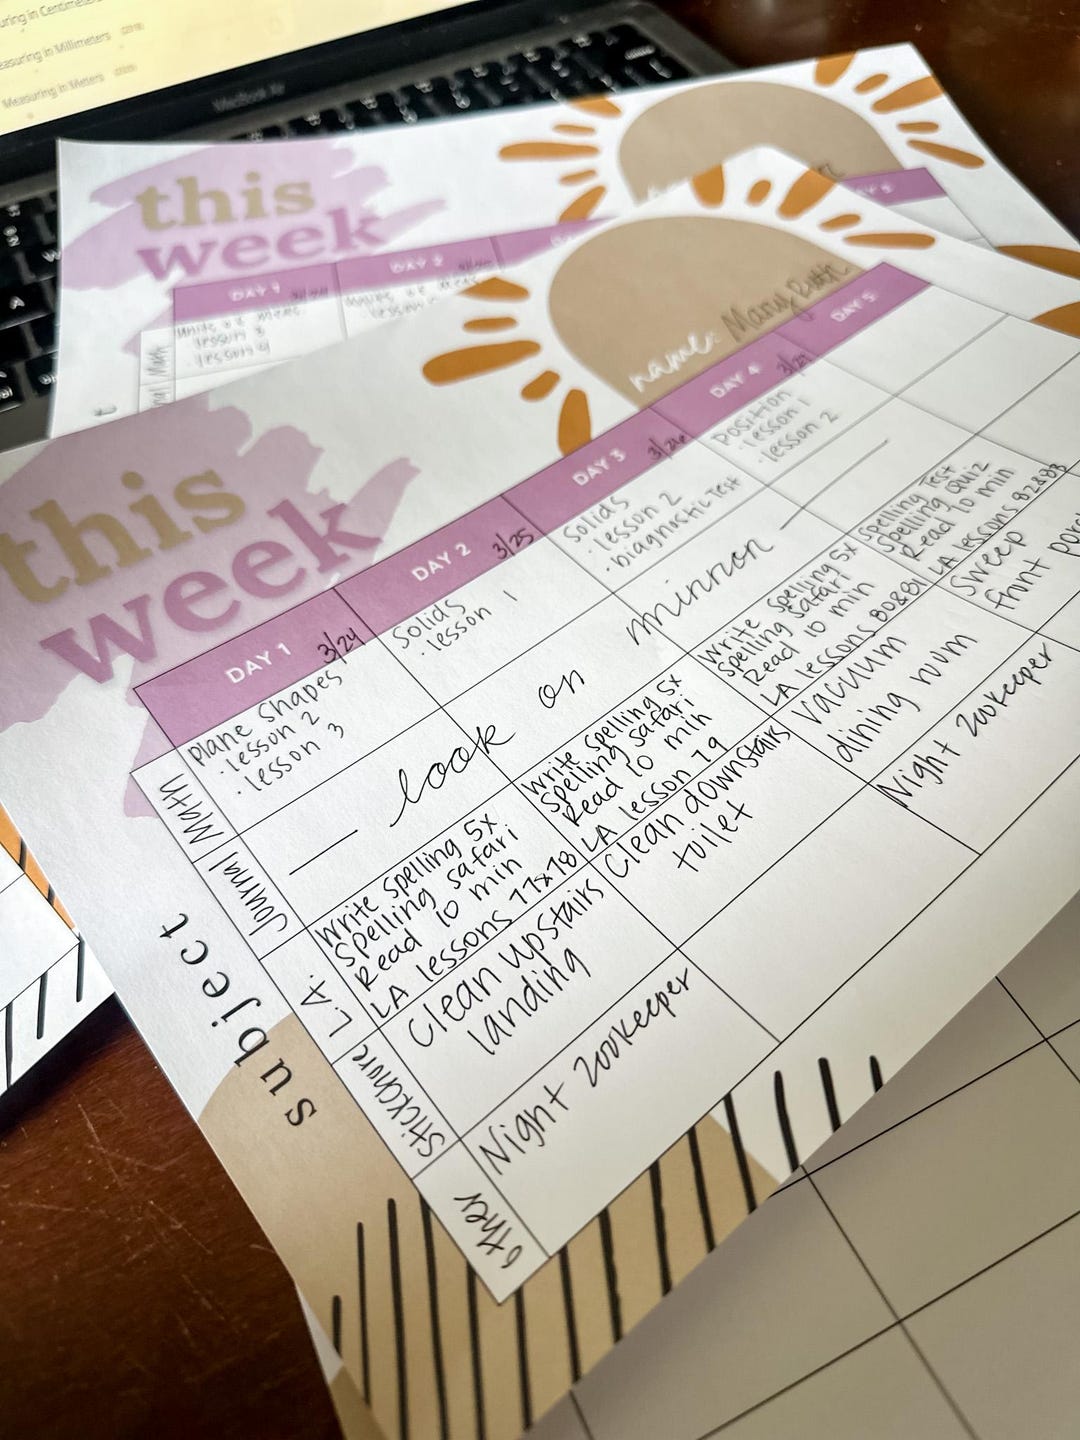 Measuring in Millimeters
Measuring in Meters
MacBook Air
this
week
DAY 1
DAY 2
lesson 3
lesson 4
Math
this
week
name: Mary Ruth
DAY 1 3/24
DAY 2 3/25
DAY 3 3/26
DAY 4 3/27
DAY 5
subject
Math
Plane Shapes
· lesson 2
· lesson 3
Solids
· lesson 1
Solids
· lesson 2
· Diagnostic Test
Position
· lesson 1
· lesson 2
Journal
look on minnon
L.A.
Write spelling 5x
Spelling safari
Read 10 min
LA lessons 77&78
Write spelling 5x
Spelling safari
Read 10 min
LA lesson 79
Write spelling 5x
Spelling safari
Read 10 min
LA lessons 80&81
Spelling Test
Spelling Quiz
Read 10 min
LA lessons 82&83
Stick Chore
Clean upstairs
landing
Clean downstairs
toilet
Vacuum
dining room
Sweep
front
other
Night Zookeeper
Night Zookeeper